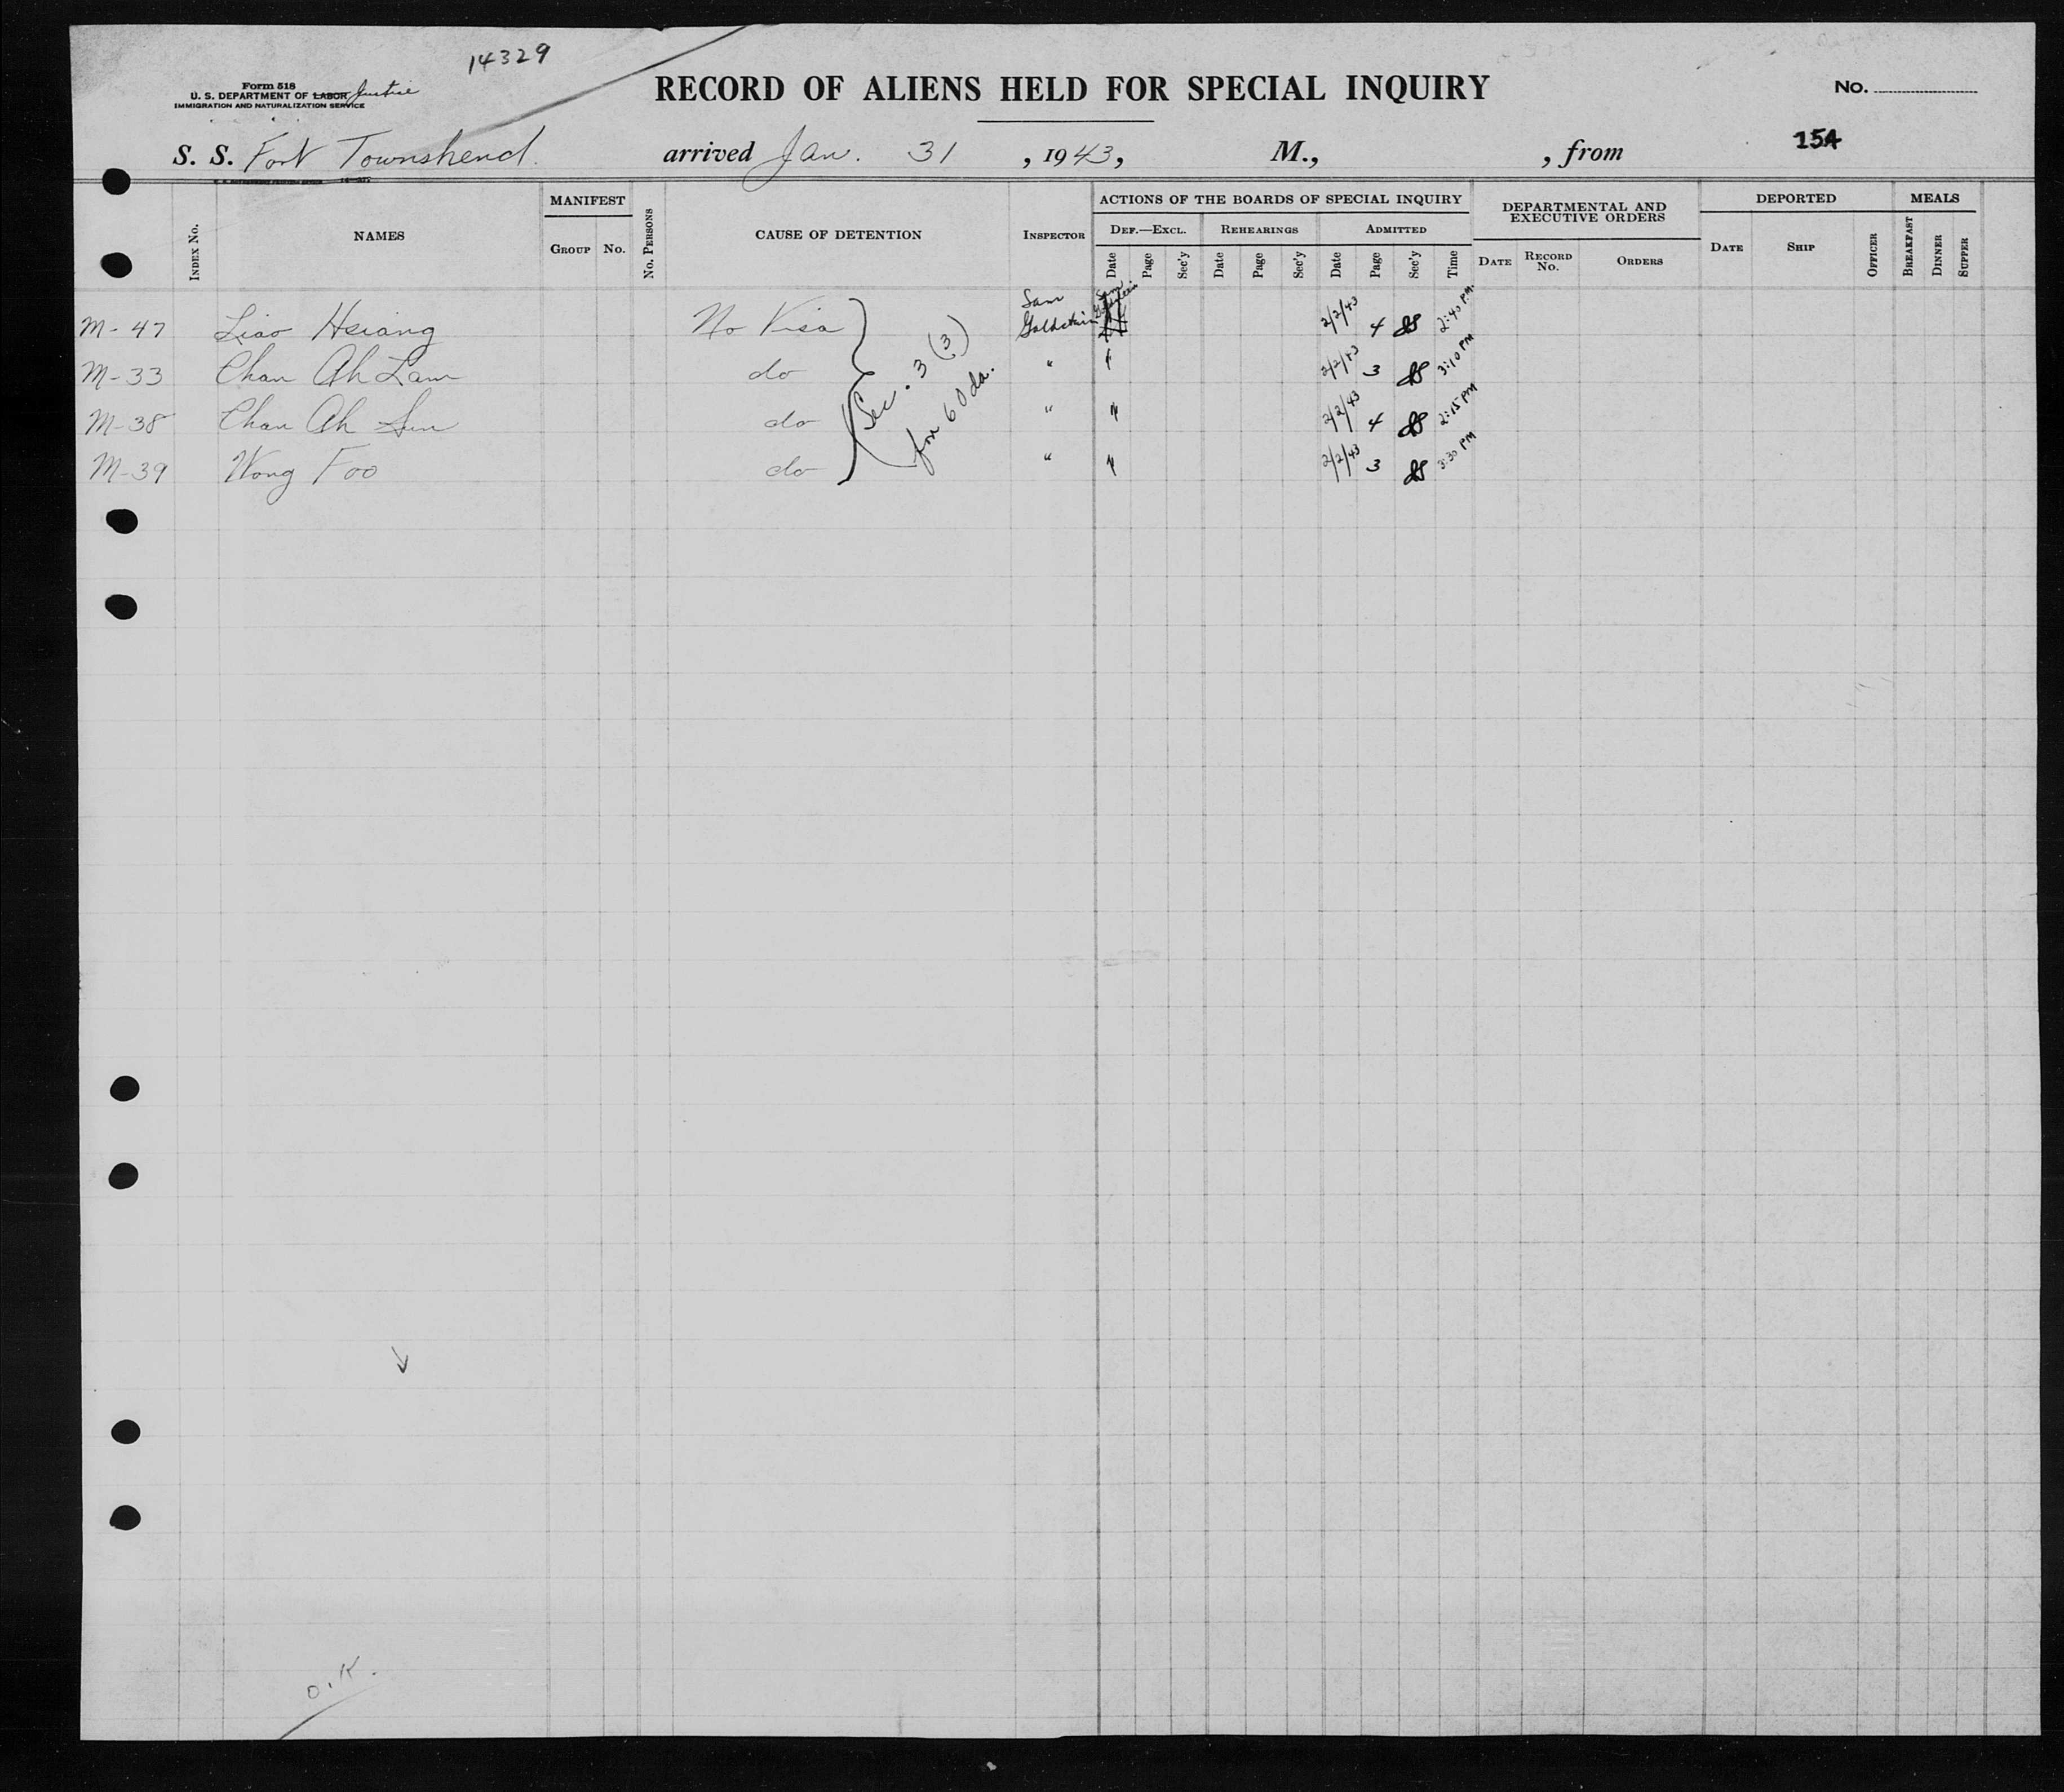 14329
Form 518
U. S. DEPARTMENT OF LABOR Justice
IMMIGRATION AND NATURALIZATION SERVICE
RECORD OF ALIENS HELD FOR SPECIAL INQUIRY
No.
154
S. S. Fort Townshend. arrived Jan. 31, 1943, M., , from
INDEX No. NAMES MANIFEST GROUP No. No. PERSONS CAUSE OF DETENTION INSPECTOR
ACTIONS OF THE BOARDS OF SPECIAL INQUIRY
DEF.—EXCL. REHEARINGS ADMITTED
Date Page Sec'y Date Page Sec'y Date Page Sec'y Time
DEPARTMENTAL AND EXECUTIVE ORDERS
DATE RECORD No. ORDERS
DEPORTED
DATE SHIP OFFICER
MEALS
BREAKFAST DINNER SUPPER
M-47 Liao Hsiang No Visa Sam Goldstein 2/2/43 4 2:40 PM.
M-33 Chan Ah Lam do " " 2/2/43 3 3:10 PM
M-38 Chan Ah Sun do " " 2/2/43 4 2:15 PM
M-39 Wong Foo do " " 2/2/43 3 3:30 PM
Sec. 3 (3)
for 60 da.
O.K.